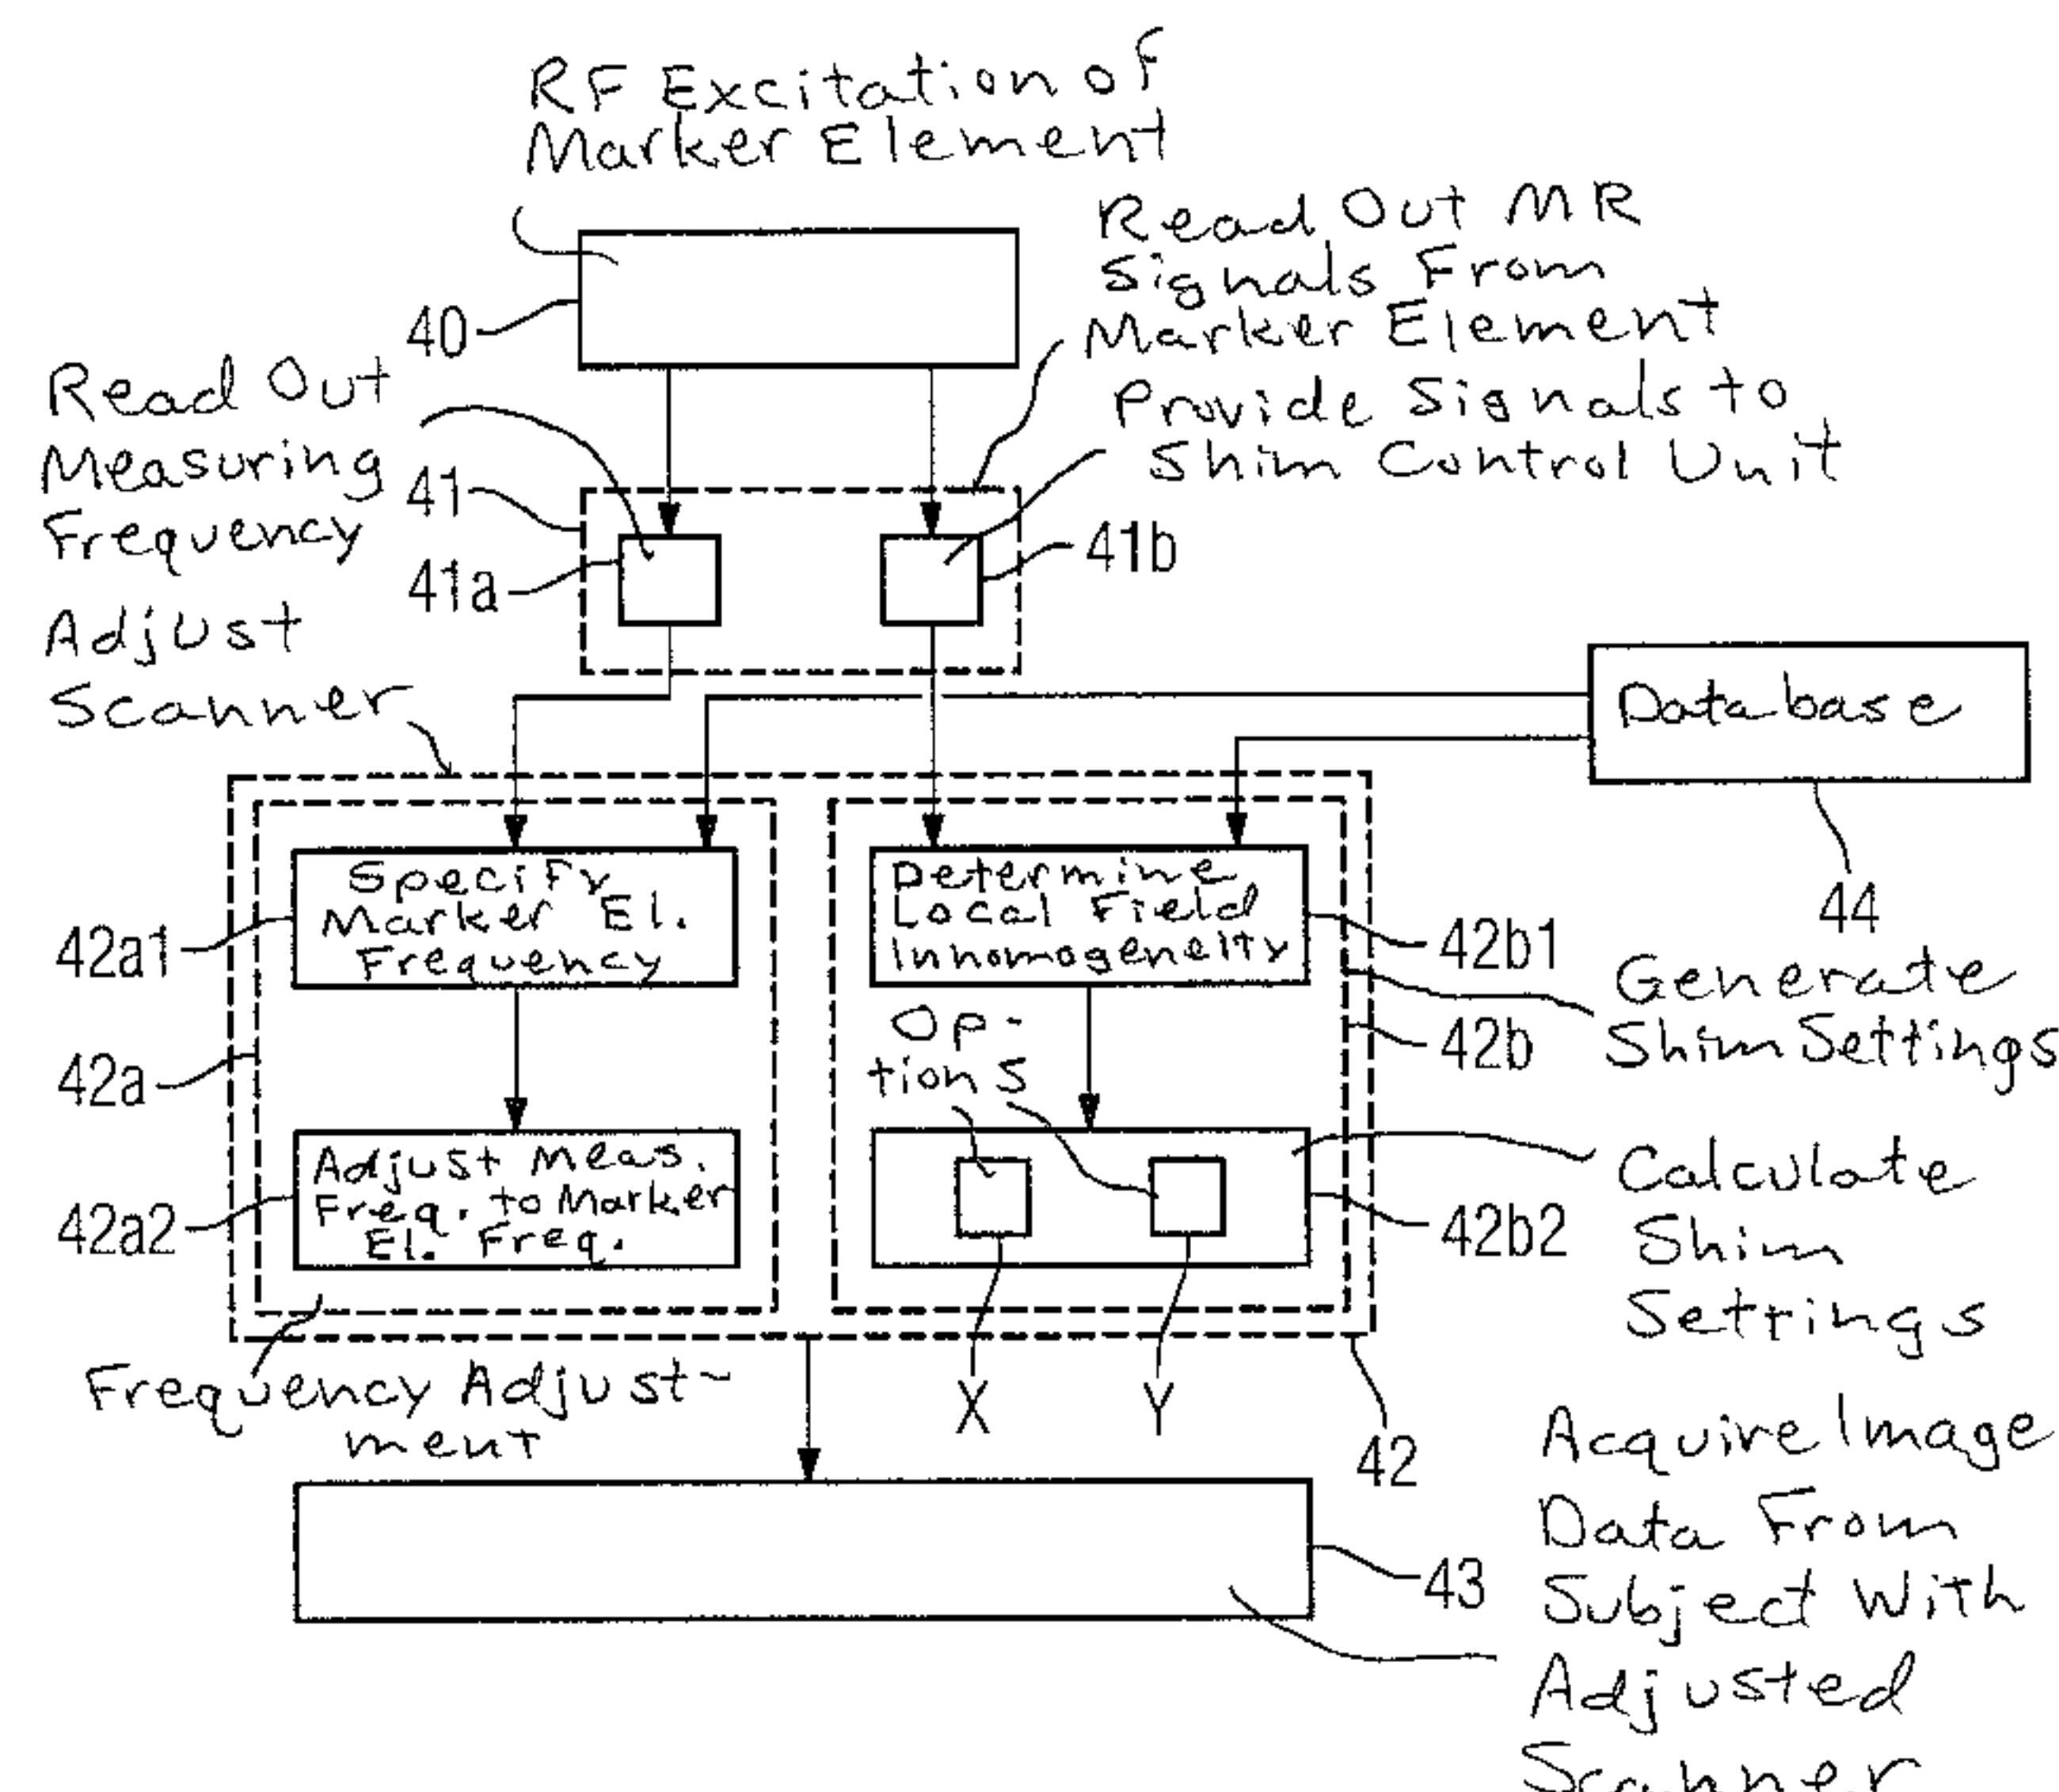 RF Excitation of
Marker Element
40
Read Out MR
Signals From
Marker Element
Provide Signals to
Shim Control Unit
Read Out
Measuring
Frequency
41
41a
41b
Adjust
Scanner
Database
44
Specify
Marker El.
Frequency
42a1
Determine
Local Field
Inhomogeneity
42b1
Generate
Shim Settings
42b
42a
Op-
tions
Adjust Meas.
Freq. to Marker
El. Freq.
42a2
42b2
Calculate
Shim
Settings
Frequency Adjust-
ment
X
Y
42
43
Acquire Image
Data From
Subject With
Adjusted
Scanner